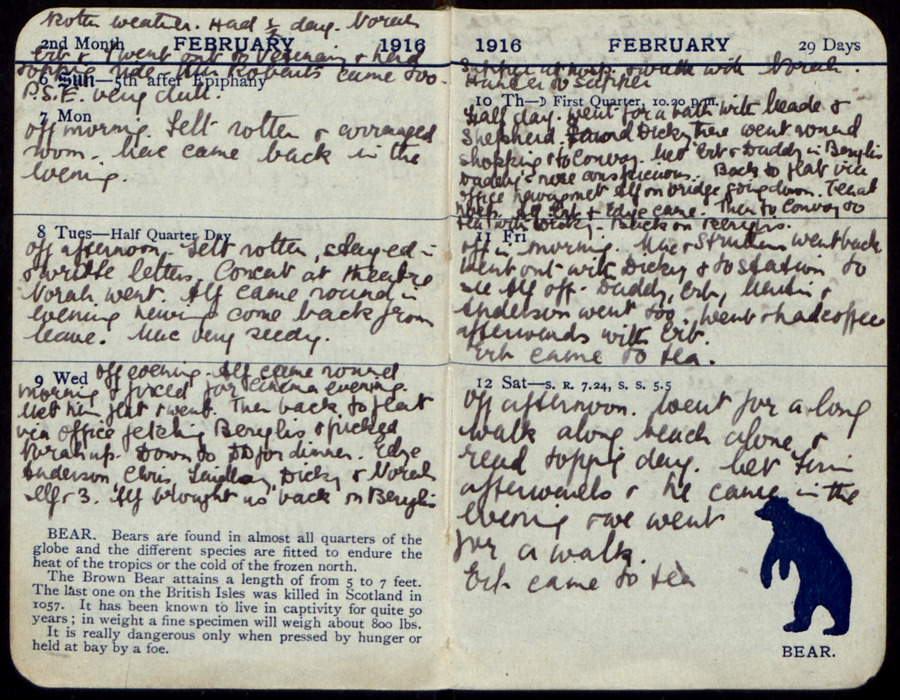 Rotten weather. Had ½ day. Norah
2nd Month FEBRUARY 1916
Erb & I went out to & had
topping ride. Mr Roberts came too.
Sun—5th after Epiphany
P.S.E. very dull.
7 Mon
off morning. Felt rotten & arranged
room. Mac came back in the
evening.
8 Tues—Half Quarter Day
off afternoon. Felt rotten, stayed in
& write letters. Concert at theatre
Norah went. Alf came round in
evening having come back from
leave. Mac very seedy.
9 Wed off evening. Alf came round
morning & fixed for cinema evening.
Met him flat & went. Then back to flat
via office fetching Beryl is & picked
Norah up. Down to DD for dinner. Edge
Anderson, Chris, Dicky & Norah
Alf & 3. Alf brought us back in Beryl
BEAR. Bears are found in almost all quarters of the
globe and the different species are fitted to endure the
heat of the tropics or the cold of the frozen north.
The Brown Bear attains a length of from 5 to 7 feet.
The last one on the British Isles was killed in Scotland in
1057. It has been known to live in captivity for quite 50
years; in weight a fine specimen will weigh about 800 lbs.
It is really dangerous only when pressed by hunger or
held at bay by a foe.
1916 FEBRUARY 29 Days
Supper at hosp. & walk with Norah.
to supper
10 Th—☽ First Quarter, 10.20 p.m.
Half day. Went for a bath with Meade &
Shepherd. Found Dicky there went round
shopping & to Convoy. Met Erb & Daddy in Beryl is
Daddy's nose conspicuous. Back to flat via
office having met Alf on bridge going down. Tea at
Alf, Erb & Edge came. Then to Convoy to
tea with Dicky. Back in Beryl is.
11 Fri
off morning. Mac & Struthers went back
Went out with Dicky & to station to
see Alf off. Daddy, Erb, &
Anderson went too. Went & had coffee
afterwards with Erb.
Erb came to tea.
12 Sat—S. R. 7.24, S. S. 5.5
off afternoon. Went for a long
walk along beach alone &
read topping day. Met
afterwards & he came in the
evening & we went
for a walk.
Erb came to tea
BEAR.